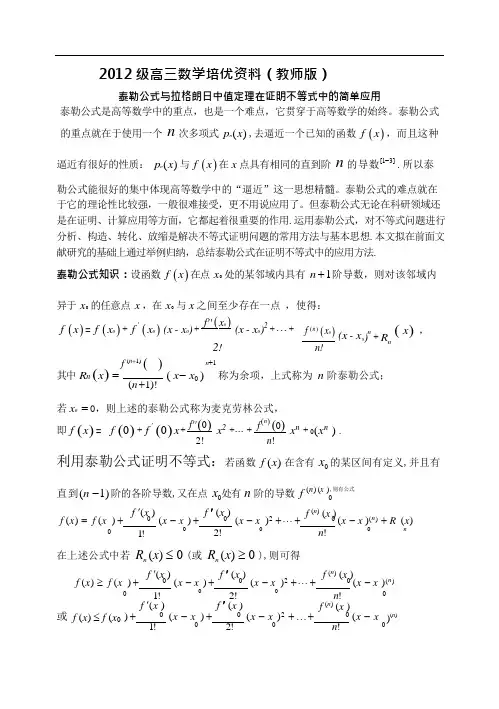 2012级高三数学培优资料（教师版）
泰勒公式与拉格朗日中值定理在证明不等式中的简单应用
泰勒公式是高等数学中的重点，也是一个难点，它贯穿于高等数学的始终。泰勒公式
的重点就在于使用一个 n 次多项式 pₙ(x)，去逼近一个已知的函数 f(x)，而且这种
逼近有很好的性质：pₙ(x) 与 f(x) 在 x 点具有相同的直到阶 n 的导数[1-3]．所以泰
勒公式能很好的集中体现高等数学中的“逼近”这一思想精髓。泰勒公式的难点就在
于它的理论性比较强，一般很难接受，更不用说应用了。但泰勒公式无论在科研领域还
是在证明、计算应用等方面，它都起着很重要的作用．运用泰勒公式，对不等式问题进行
分析、构造、转化、放缩是解决不等式证明问题的常用方法与基本思想．本文拟在前面文
献研究的基础上通过举例归纳，总结泰勒公式在证明不等式中的应用方法．
泰勒公式知识：设函数 f(x) 在点 x₀ 处的某邻域内具有 n+1 阶导数，则对该邻域内
异于 x₀ 的任意点 x，在 x₀ 与 x 之间至少存在一点 ，使得：
f(x) = f(x₀) + f'(x₀)(x - x₀) + f''(x₀)/2! (x - x₀)² + ⋯ + f⁽ⁿ⁾(x₀)/n! (x - x₀)ⁿ + Rₙ(x)，
其中 Rₙ(x) = f⁽ⁿ⁺¹⁾( )/(n+1)! (x - x₀)ⁿ⁺¹ 称为余项，上式称为 n 阶泰勒公式；
若 x₀ = 0，则上述的泰勒公式称为麦克劳林公式，
即 f(x) = f(0) + f'(0)x + f''(0)/2! x² + ⋯ + f⁽ⁿ⁾(0)/n! xⁿ + 0(xⁿ)．
利用泰勒公式证明不等式：若函数 f(x) 在含有 x₀ 的某区间有定义，并且有
直到 (n-1) 阶的各阶导数，又在点 x₀ 处有 n 阶的导数 f⁽ⁿ⁾(x₀)，则有公式
f(x) = f(x₀) + f'(x₀)/1! (x - x₀) + f''(x₀)/2! (x - x₀)² + ⋯ + f⁽ⁿ⁾(x₀)/n! (x - x₀)⁽ⁿ⁾ + Rₙ(x)
在上述公式中若 Rₙ(x) ≤ 0 (或 Rₙ(x) ≥ 0)，则可得
f(x) ≥ f(x₀) + f'(x₀)/1! (x - x₀) + f''(x₀)/2! (x - x₀)² + ⋯ + f⁽ⁿ⁾(x₀)/n! (x - x₀)⁽ⁿ⁾
或 f(x) ≤ f(x₀) + f'(x₀)/1! (x - x₀) + f''(x₀)/2! (x - x₀)² + … + f⁽ⁿ⁾(x₀)/n! (x - x₀)⁽ⁿ⁾